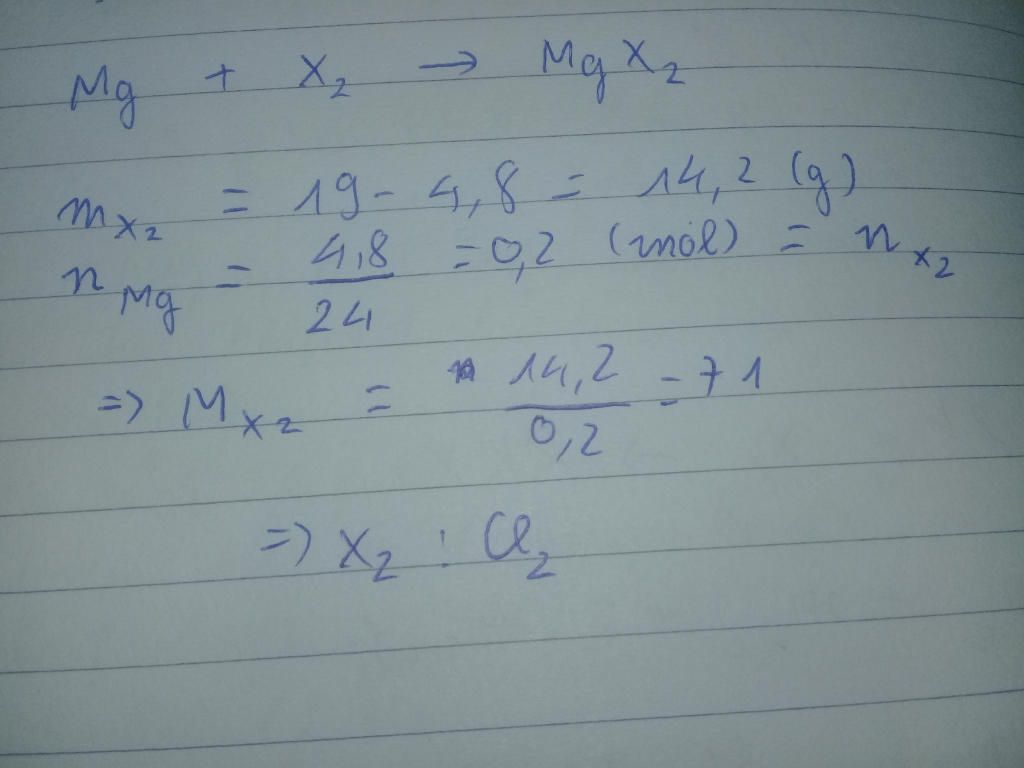 Mg + X₂ → MgX₂
m_X₂ = 19 - 4,8 = 14,2 (g)
n_Mg = 4,8/24 = 0,2 (mol) = n_X₂
=> M_X₂ = 14,2/0,2 = 71
=> X₂ : Cl₂